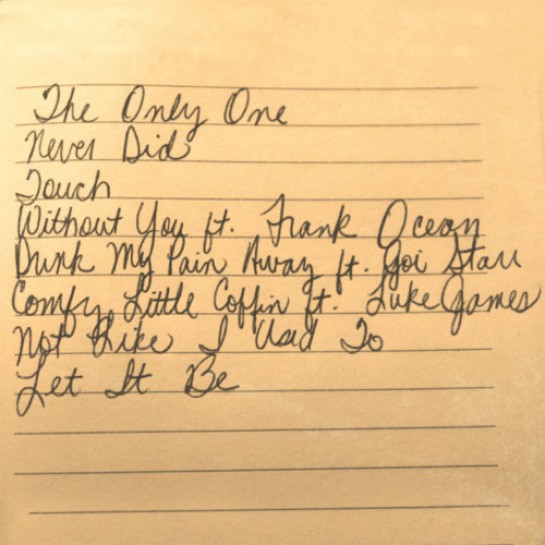 The Only One
Never Did
Touch
Without You ft. Frank Ocean
Drunk My Pain Away ft. Joi Starr
Comfy, Little Coffin ft. Luke James
Not Like I Used To
Let It Be